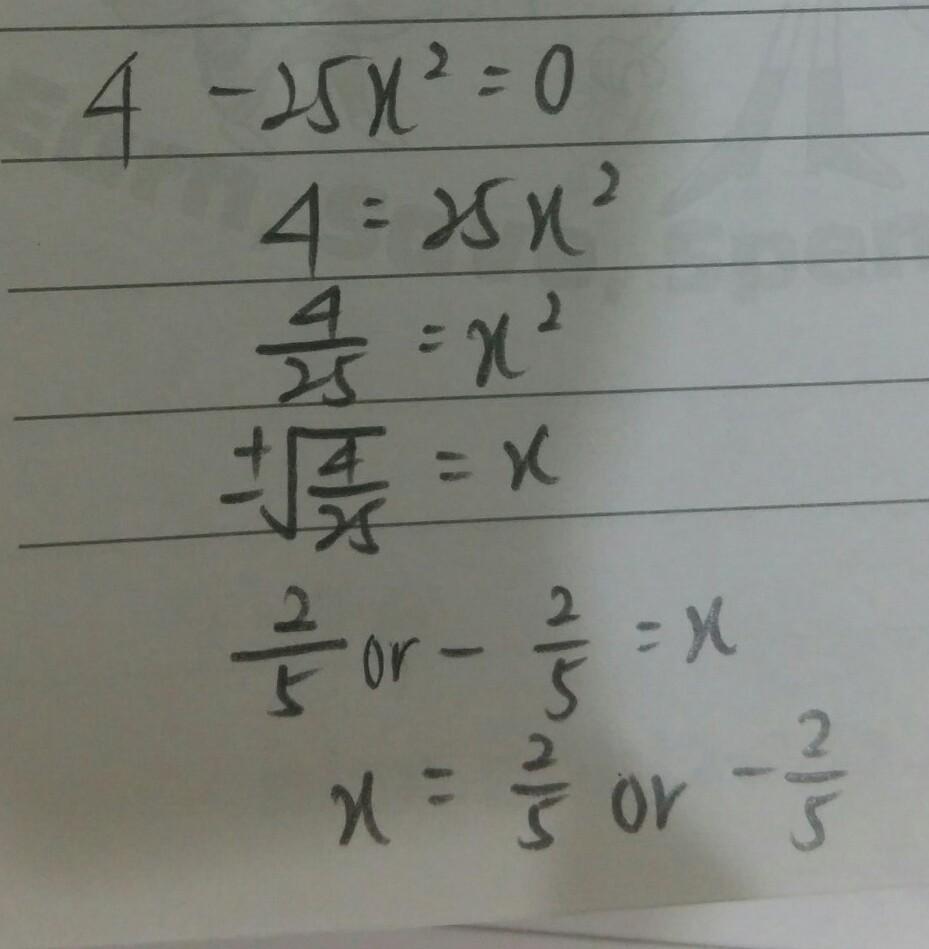 4 - 25x² = 0
4 = 25x²
4/25 = x²
±√(4/25) = x
2/5 or - 2/5 = x
x = 2/5 or - 2/5